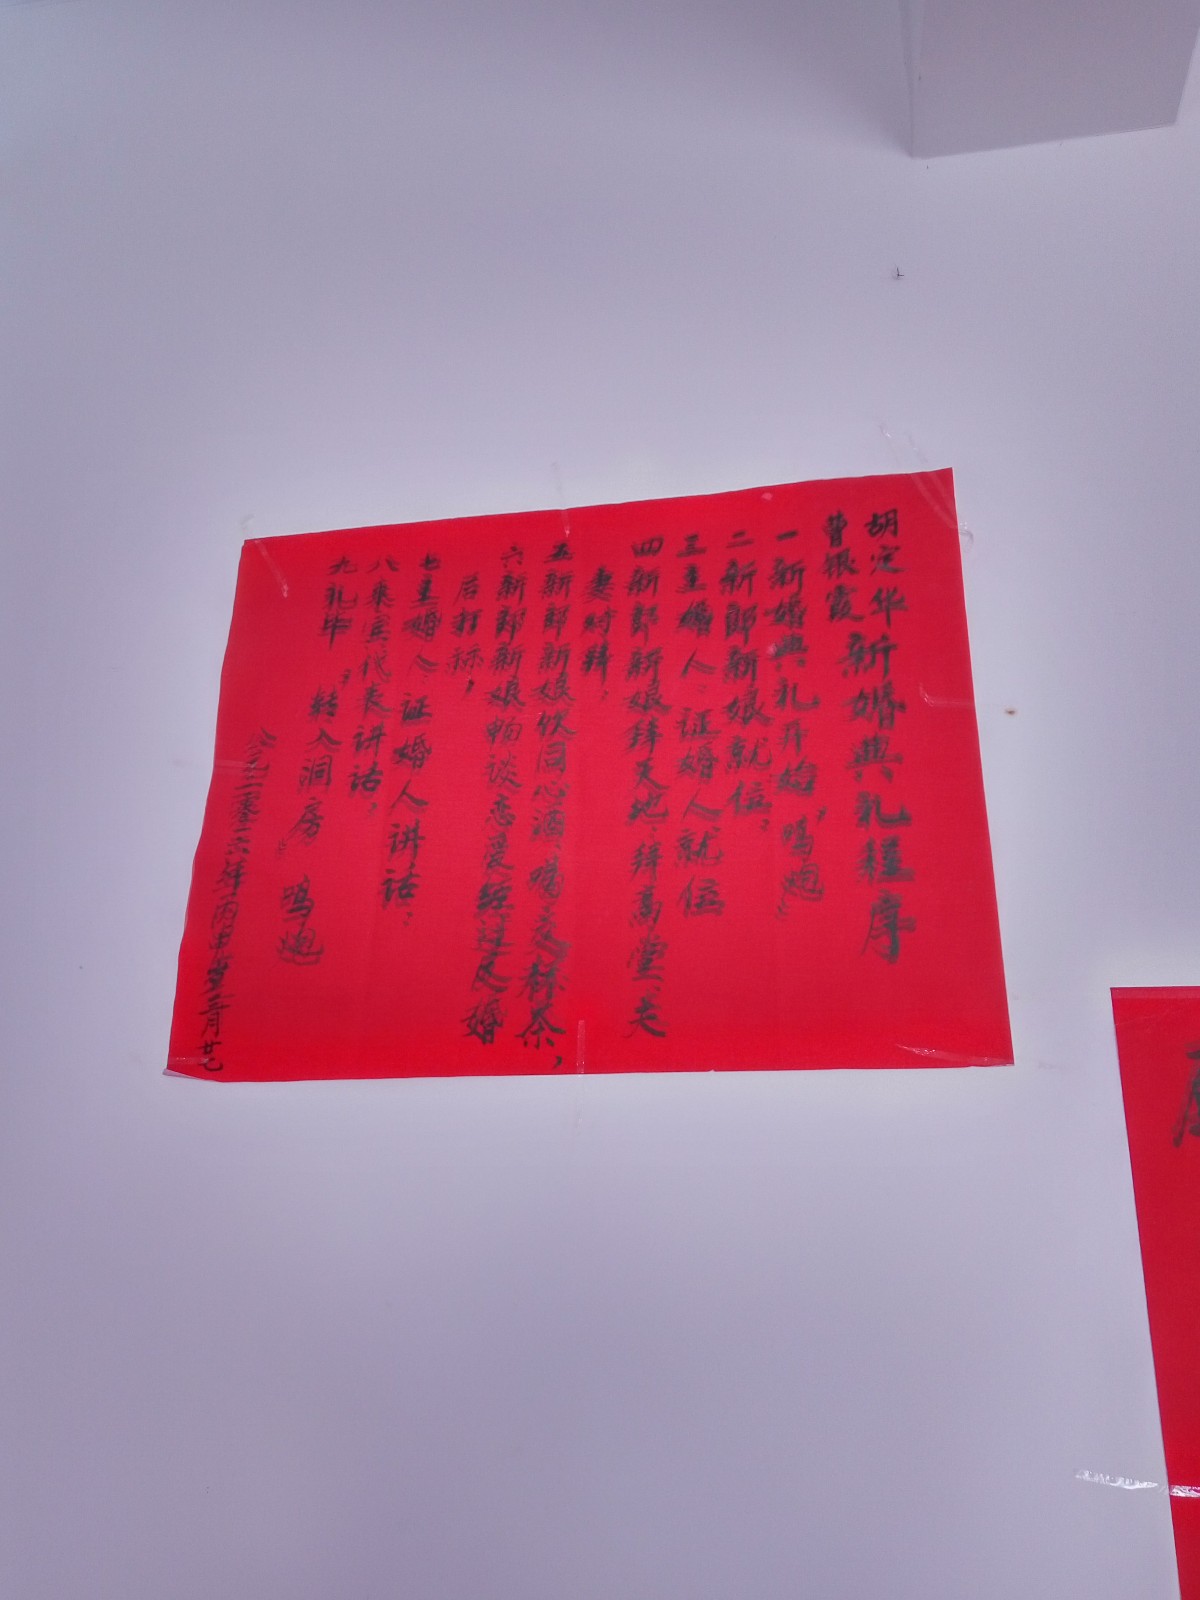 胡定华
曹银霞
新婚典礼程序
一新婚典礼开始，鸣炮
二新郎新娘就位，
三主婚人、证婚人就位
四新郎新娘拜天地、拜高堂、夫
妻对拜，
五新郎新娘饮同心酒、喝交杯茶，
六新郎新娘畅谈恋爱经过及婚
后打标，
七主婚人、证婚人讲话，
八来宾代表讲话，
九礼毕，转入洞房 鸣炮
公元二零一六年丙申岁二月廿七